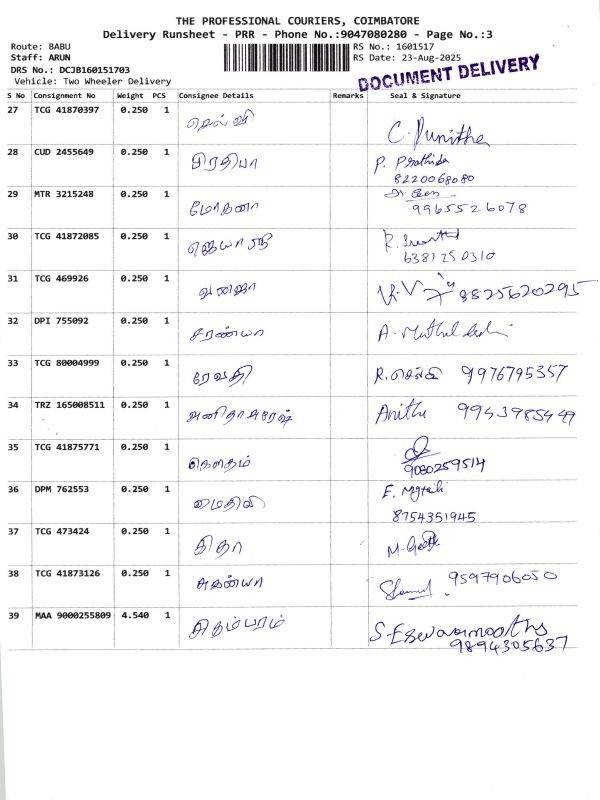 THE PROFESSIONAL COURIERS, COIMBATORE
Delivery Runsheet - PRR - Phone No.:9047080280 - Page No.:3
Route: BABU RS No.: 1601517
Staff: ARUN RS Date: 23-Aug-2025
DRS No.: DCJB160151703
Vehicle: Two Wheeler Delivery
DOCUMENT DELIVERY
S No Consignment No Weight PCS Consignee Details Remarks Seal & Signature
27 TCG 41870397 0.250 1 செல்வி C. Punitha
28 CUD 2455649 0.250 1 பிரதிபா P. Prathiba
8220068080
29 MTR 3215248 0.250 1 மோகனா
9965526078
30 TCG 41872085 0.250 1 ஜெயாரதி
6381250310
31 TCG 469926 0.250 1 வனஜா 8825620295
32 DPI 755092 0.250 1 சரண்யா
33 TCG 80004999 0.250 1 ரேவதி R. செல்வி 9976795357
34 TRZ 165008511 0.250 1 அனிதாசுரேஷ் Anitha 9943985449
35 TCG 41875771 0.250 1 கௌதம்
9080259514
36 DPM 762553 0.250 1 மைதிலி E. Mythili
8754351945
37 TCG 473424 0.250 1 கீதா M. Geetha
38 TCG 41873126 0.250 1 சுகன்யா 9597906050
39 MAA 9000255809 4.540 1 சிதம்பரம் S. Eswaramoorthy
9894305637